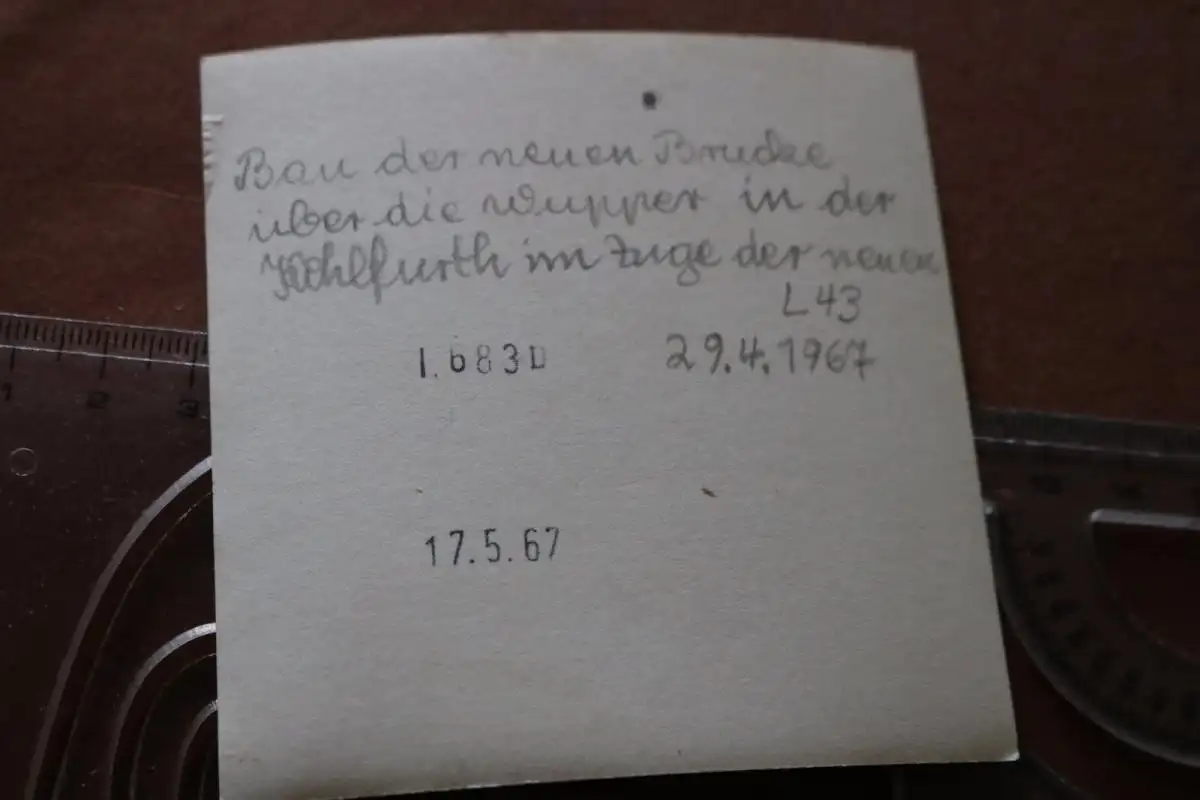 Bau der neuen Brucke
über die Wupper in der
Kohlfurth im Zuge der neuen
L43
29.4.1967
17.5.67
1
2
3